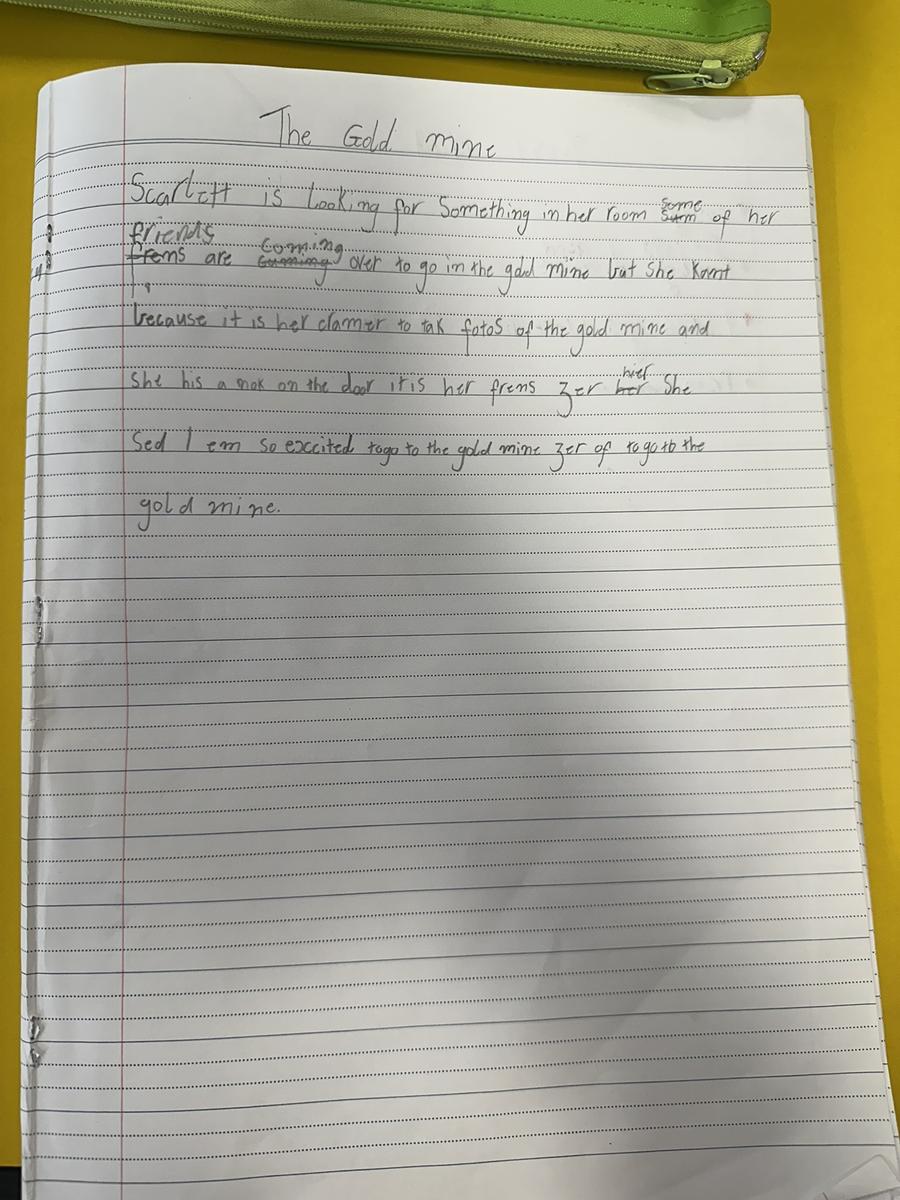 The Gold mine
Scarlett is Looking for Something in her room some surm of her
friends
frems are Coming Cuming over to go in the gold mine but She Kant
because it is her clamer to tak fotos of the gold mine and
She his a nok on the door it is her frens zer her her She
Sed I em so excited togo to the gold mine zer of to go to the
gold mine.